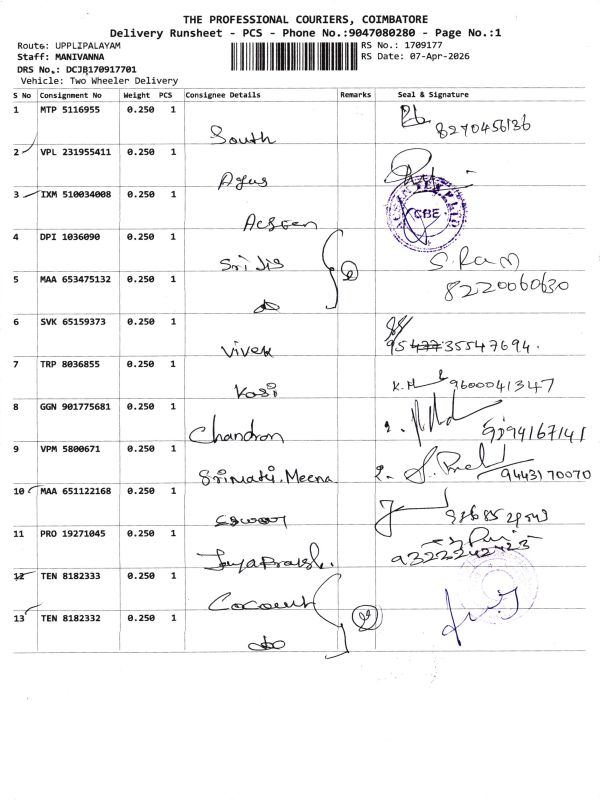 THE PROFESSIONAL COURIERS, COIMBATORE
Delivery Runsheet - PCS - Phone No.:9047080280 - Page No.:1
Route: UPPLIPALAYAM RS No.: 1709177
Staff: MANIVANNA RS Date: 07-Apr-2026
DRS No.: DCJB170917701
Vehicle: Two Wheeler Delivery
S No Consignment No Weight PCS Consignee Details Remarks Seal & Signature
1 MTP 5116955 0.250 1
South 8270456136
2 VPL 231955411 0.250 1
Agus
3 IXM 510034008 0.250 1
CBE
4 DPI 1036090 0.250 1
S. Ram
5 MAA 653475132 0.250 1
do 8220060630
6 SVK 65159373 0.250 1
Vivek 35547694.
7 TRP 8036855 0.250 1
Kasi K.M 9600041347
8 GGN 901775681 0.250 1
Chandron
9 VPM 5800671 0.250 1
Srimati. Meena 9443170070
10 MAA 651122168 0.250 1
11 PRO 19271045 0.250 1
12 TEN 8182333 0.250 1
13 TEN 8182332 0.250 1
do